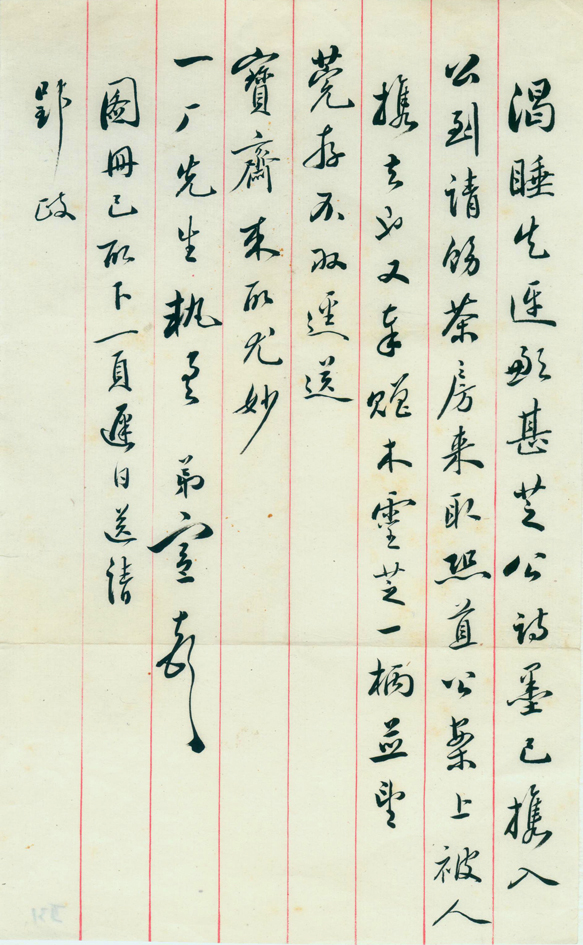 渴睡失迓歉甚芝公詩墨已攜入
公到請飭茶房来取恐置公案上被人
攜去也又奉贈木靈芝一柄並望
莞存不取遥送
寶齋来取尤妙
一厂先生執事 弟宣頓
圖冊已取下一頁遲日送請
野政